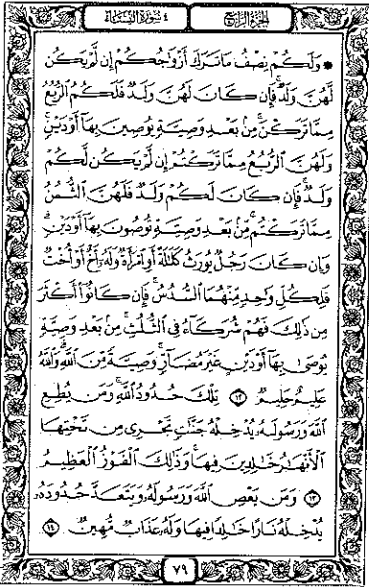 الجزء الرابع ٤ سورة النساء
۞ وَلَكُمْ نِصْفُ مَا تَرَكَ أَزْوَٰجُكُمْ إِن لَّمْ يَكُن
لَّهُنَّ وَلَدٌ ۚ فَإِن كَانَ لَهُنَّ وَلَدٌ فَلَكُمُ ٱلرُّبُعُ
مِمَّا تَرَكْنَ ۚ مِنۢ بَعْدِ وَصِيَّةٍ يُوصِينَ بِهَآ أَوْ دَيْنٍ ۚ
وَلَهُنَّ ٱلرُّبُعُ مِمَّا تَرَكْتُمْ إِن لَّمْ يَكُن لَّكُمْ
وَلَدٌ ۚ فَإِن كَانَ لَكُمْ وَلَدٌ فَلَهُنَّ ٱلثُّمُنُ
مِمَّا تَرَكْتُم ۚ مِّنۢ بَعْدِ وَصِيَّةٍ تُوصُونَ بِهَآ أَوْ دَيْنٍ ۗ
وَإِن كَانَ رَجُلٌ يُورَثُ كَلَٰلَةً أَوِ ٱمْرَأَةٌ وَلَهُۥٓ أَخٌ أَوْ أُخْتٌ
فَلِكُلِّ وَٰحِدٍ مِّنْهُمَا ٱلسُّدُسُ ۚ فَإِن كَانُوٓا۟ أَكْثَرَ
مِن ذَٰلِكَ فَهُمْ شُرَكَآءُ فِى ٱلثُّلُثِ ۚ مِنۢ بَعْدِ وَصِيَّةٍ
يُوصَىٰ بِهَآ أَوْ دَيْنٍ غَيْرَ مُضَآرٍّ ۚ وَصِيَّةً مِّنَ ٱللَّهِ ۗ وَٱللَّهُ
عَلِيمٌ حَلِيمٌ ١٢ تِلْكَ حُدُودُ ٱللَّهِ ۚ وَمَن يُطِعِ
ٱللَّهَ وَرَسُولَهُۥ يُدْخِلْهُ جَنَّٰتٍ تَجْرِى مِن تَحْتِهَا
ٱلْأَنْهَٰرُ خَٰلِدِينَ فِيهَا ۚ وَذَٰلِكَ ٱلْفَوْزُ ٱلْعَظِيمُ
١٣ وَمَن يَعْصِ ٱللَّهَ وَرَسُولَهُۥ وَيَتَعَدَّ حُدُودَهُۥ
يُدْخِلْهُ نَارًا خَٰلِدًا فِيهَا وَلَهُۥ عَذَابٌ مُّهِينٌ ١٤
٧٩